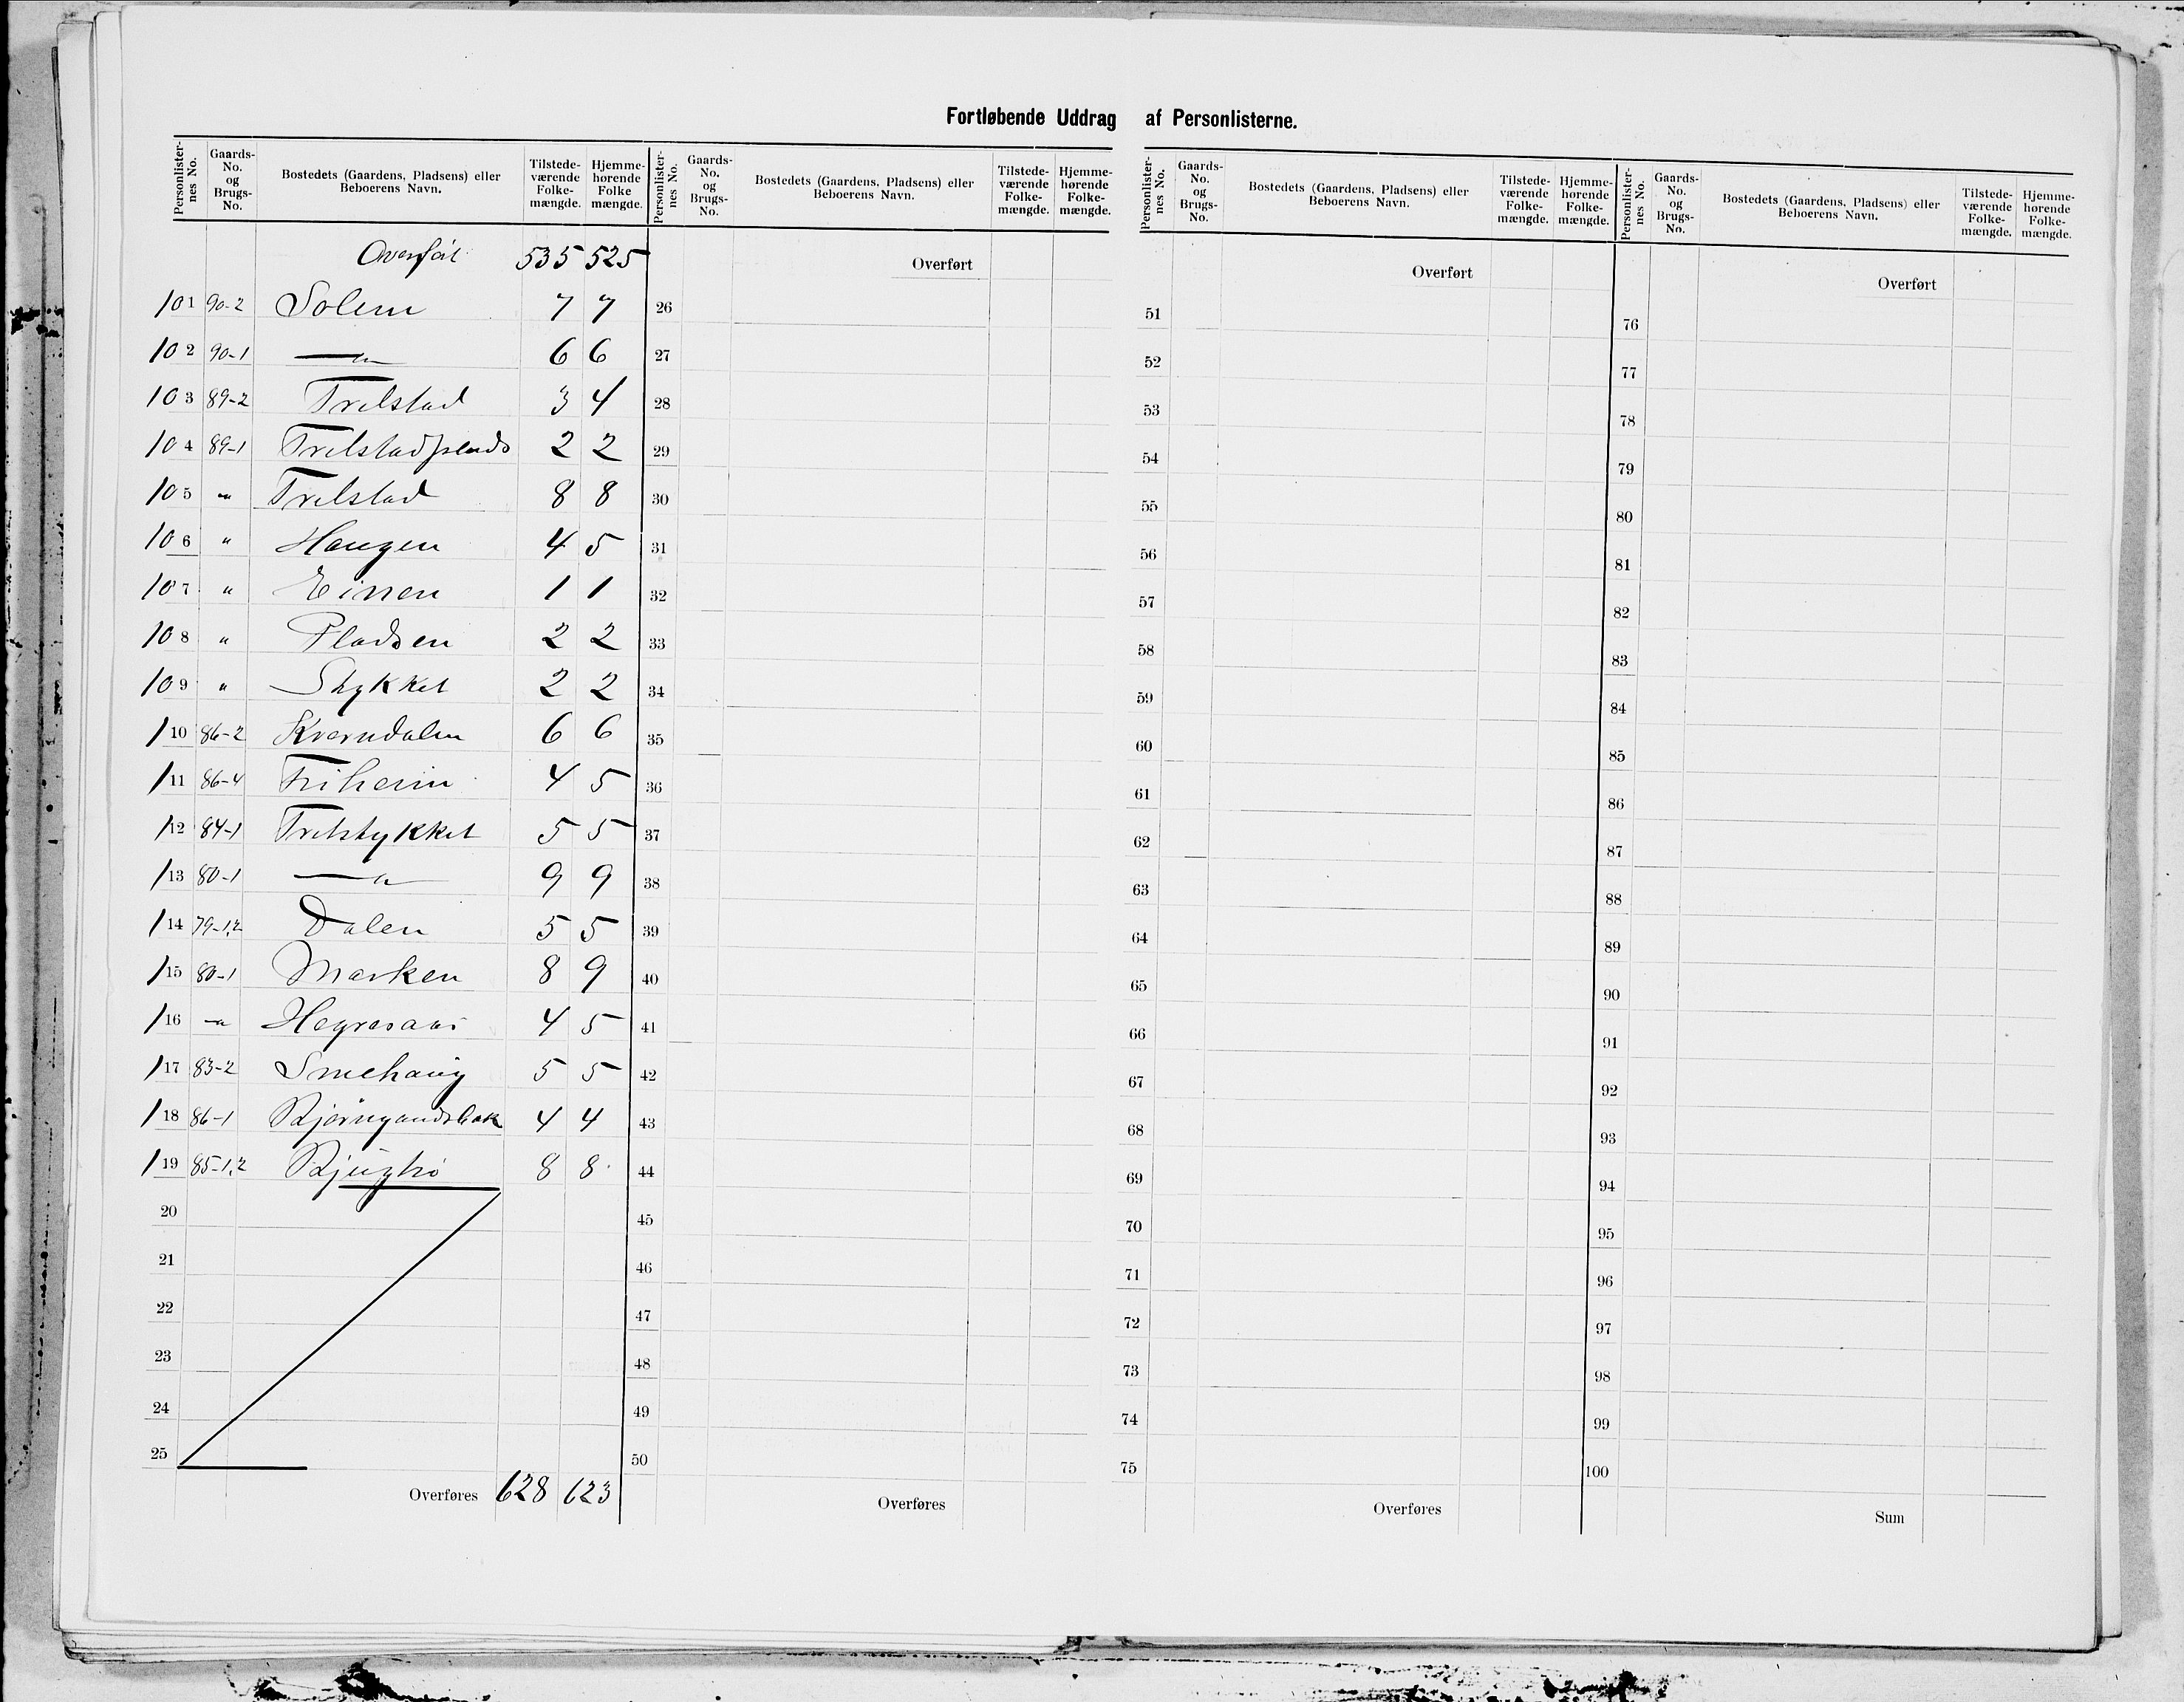 Fortløbende Uddrag af Personlisterne.
Personlister-nes No. Gaards-No. og Brugs-No. Bostedets (Gaardens, Pladsens) eller Beboerens Navn. Tilstede-værende Folke-mængde. Hjemme-hørende Folke mængde.
Personlister-nes No. Gaards-No. og Brugs-No. Bostedets (Gaardens, Pladsens) eller Beboerens Navn. Tilstede-værende Folke-mængde. Hjemme-hørende Folke-mængde.
Personlister-nes No. Gaards-No. og Brugs-No. Bostedets (Gaardens, Pladsens) eller Beboerens Navn. Tilstede-værende Folke-mængde. Hjemme-hørende Folke-mængde.
Personlister-nes No. Gaards-No. og Brugs-No. Bostedets (Gaardens, Pladsens) eller Beboerens Navn. Tilstede-værende Folke-mængde. Hjemme-hørende Folke-mængde.
Overført 535 525
101 90-2 Solem 7 7
102 90-1 —"— 6 6
103 89-2 Trelstad 3 4
104 89-1 Trelstadplads 2 2
105 " Trelstad 8 8
106 " Haugen 4 5
107 " Einren 1 1
108 " Pladsen 2 2
109 " Stykket 2 2
110 86-2 Kverndalen 6 6
111 86-4 Friheim 4 5
112 84-1 Tretstykket 5 5
113 80-1 —"— 9 9
114 79-1,2 Dalen 5 5
115 80-1 Marken 8 9
116 " Hegresaas 4 5
117 83-2 Smehaug 5 5
118 86-1 4 4
119 85-1,2 8 8
20
21
22
23
24
25
Overføres 628 623
Overført
26
27
28
29
30
31
32
33
34
35
36
37
38
39
40
41
42
43
44
45
46
47
48
49
50
Overføres
Overført
51
52
53
54
55
56
57
58
59
60
61
62
63
64
65
66
67
68
69
70
71
72
73
74
75
Overføres
Overført
76
77
78
79
80
81
82
83
84
85
86
87
88
89
90
91
92
93
94
95
96
97
98
99
100
Sum